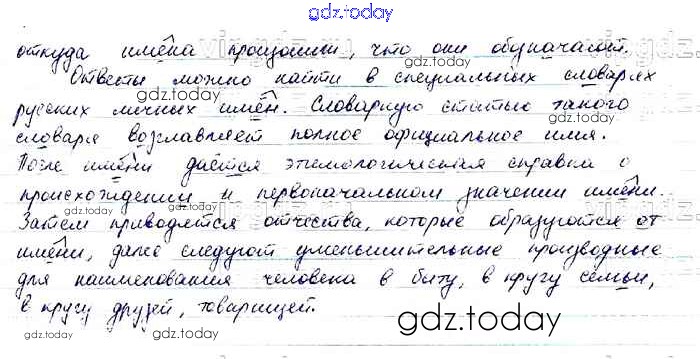 gdz.today
откуда имена произошли, что они обозначают.
Ответы можно найти в специальных словарях
gdz.today
русских личных имён. Словарную статью такого
словаря возглавляет полное официальное имя.
gdz.today
После имени даётся этимологическая справка о
gdz.today
происхождении и первоначальном значении имени.
gdz.today
Затем приводятся отчества, которые образуются от
имени, далее следуют уменьшительные производные
для наименования человека в быту, в кругу семьи,
в кругу друзей, товарищей.
gdz.today
gdz.today